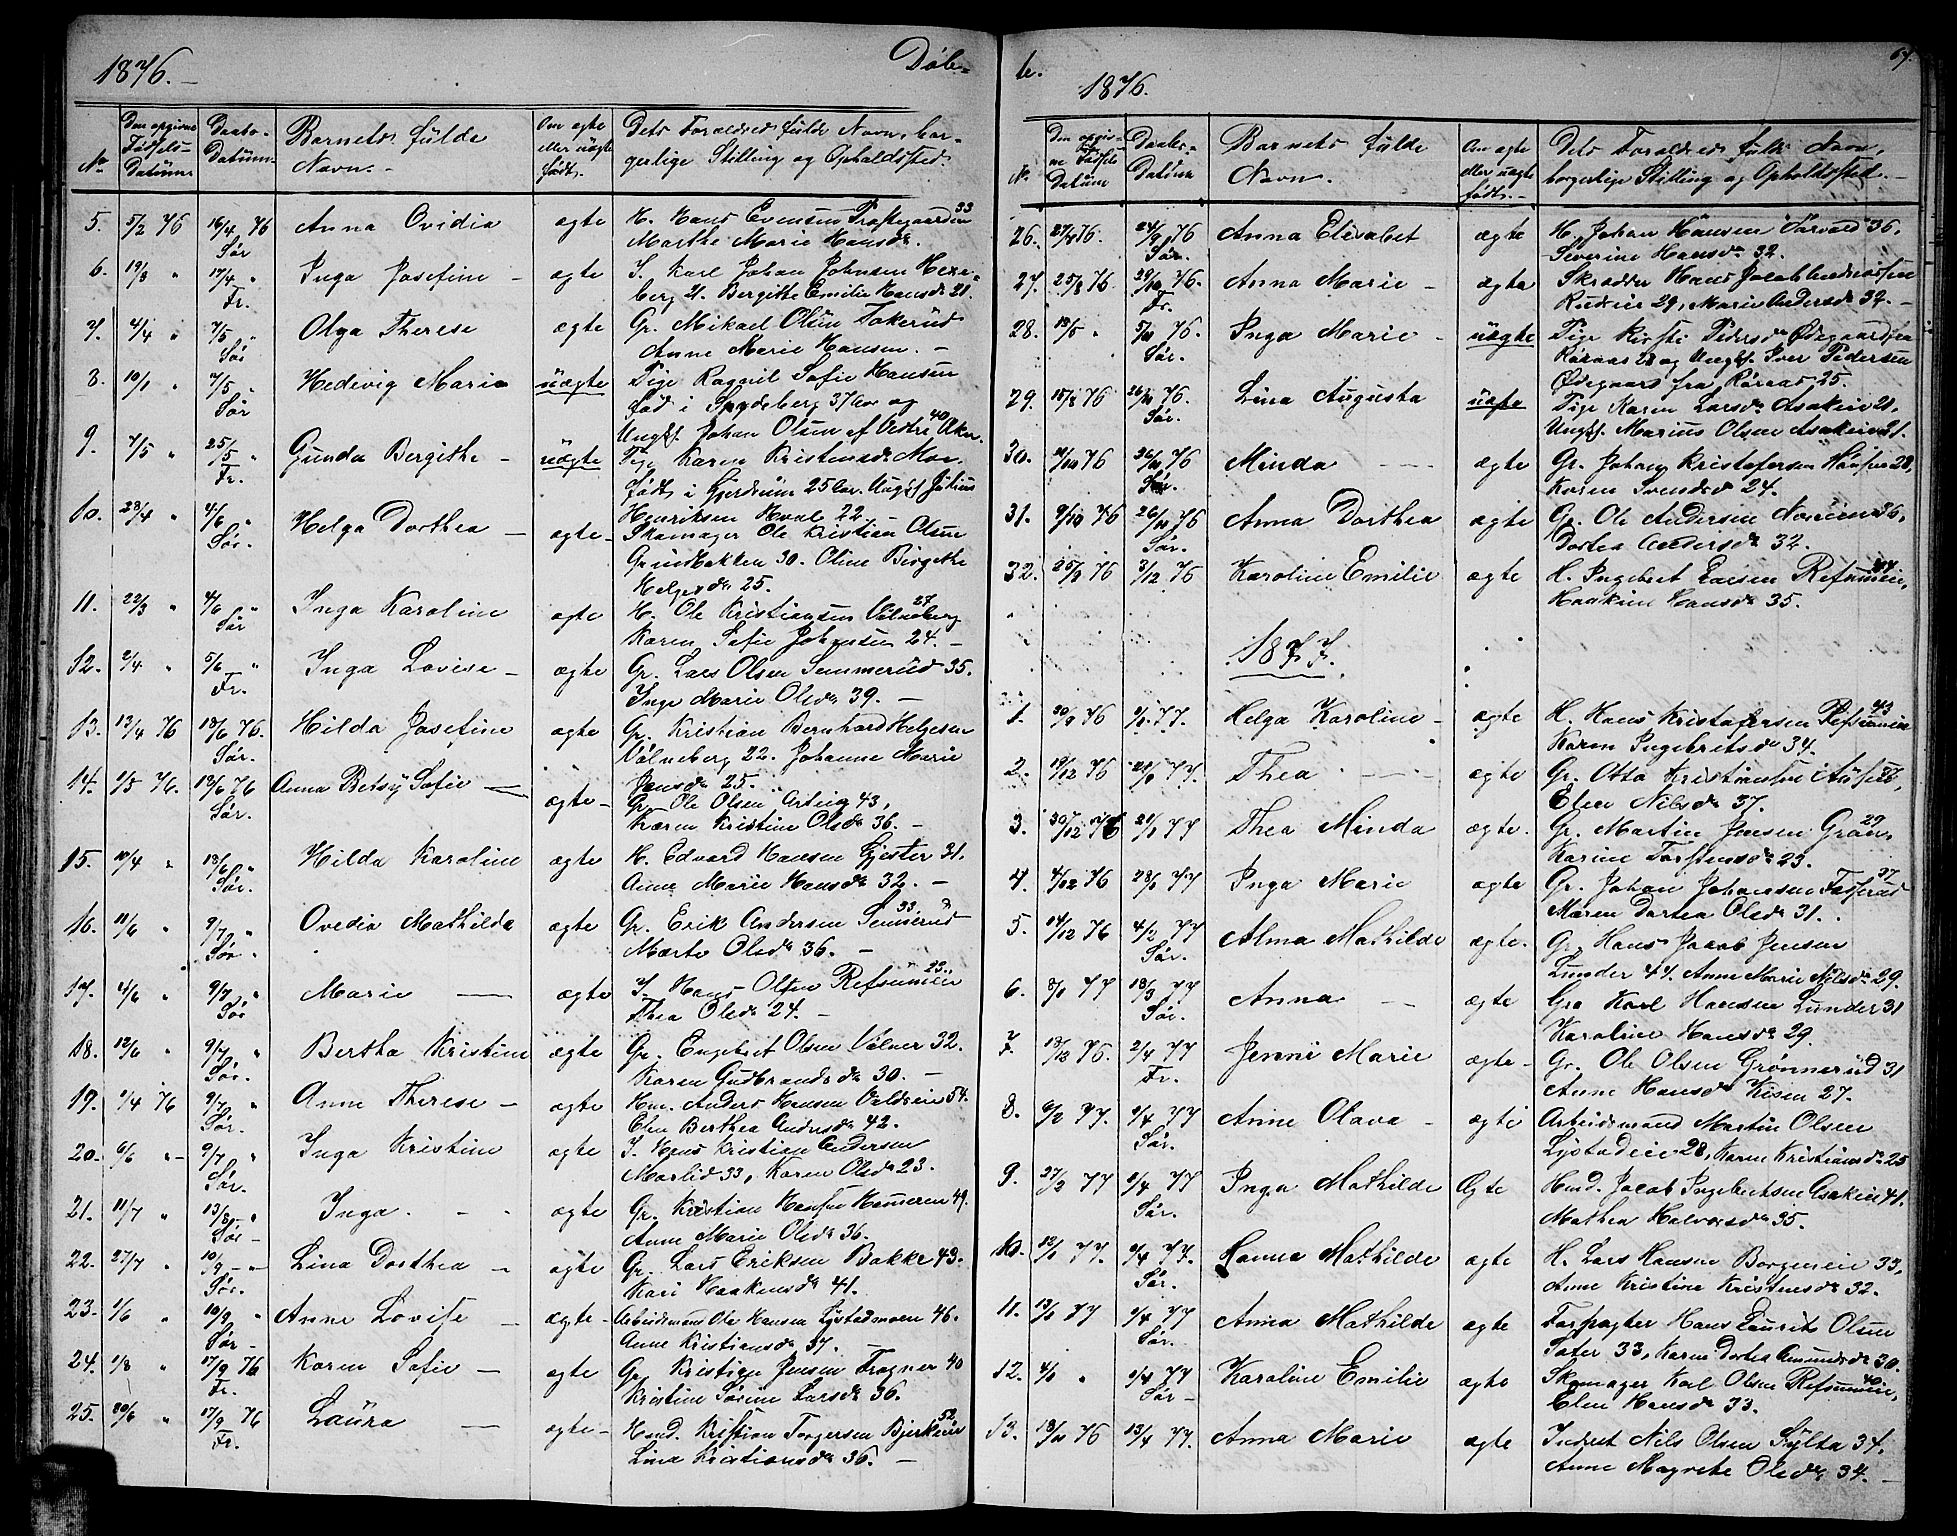 1876.
Døb-
No
Den opgivne Fødsels-Datum
Daabs-Datum
Barnets fulde Navn.
Om ægte eller uægte født.
Dets Forældres fulde Navn, bor-
gerlige Stilling og Opholdssted.
5. 5/2 76 16/4 76 Anna Ovidia ægte H. Hans Evensen Præstegaarden 33
Sør Marthe Marie Hansdr.
6. 19/3 " 17/4 " Inga Josefine - ægte I. Karl Johan Johnsen Hexe-
Fr. berg 21. Bergitte Emilie Hansdr 21.
7. 4/4 " 7/5 " Olga Therese ægte Gr. Mikael Olsen Tokerud
Sør Anne Marie Hansen. -
8. 10/1 " 7/5 " Hedevig Marie uægte Pige Ragnil Sofie Hansen
Sør født i Spydeberg 37 Aar og
Ungk. Johan Olsen af Vestre Aker. 40
9. 7/5 " 25/5 " Gunda Bergithe - uægte Pige Karen Kristensdr Moe
Fr. født i Gjerdrum 25 Aar. Ungk. Julius
Henriksen Hval 22 -
10. 28/4 " 4/6 " Helga Dorthea - ægte - Skomager Ole Kristian Olsen
Sør. Grindbakken 30. Oline Birgithe
Helgesdr 25.
11. 22/3 " 4/6 " Inga Karoline ægte H. Ole Kristiansen Vilneberg 28
Sør Karen Sofie Johnsen 24. -
12. 2/4 " 5/6 " Inga Lovise - ægte Gr. Lars Olsen Semmerud 35.
Fr. Inge Marie Olsdr 39. -
13. 13/4 76 18/6 76. Hilda Josefine ægte Gr. Kristian Bernhard Helgesen
Sør. Vilneberg 22. Johanne Marie
Jensdr 25.
14. 1/5 76. 18/6 76 Anna Betsy Sofie - ægte - Gr. Ole Olsen Arteig 43,
Sør. Karen Kristine Olsdr 36. -
15. 10/4 " 18/6 " Hilda Karoline ægte H. Edvard Hansen Gjester 31.
Sør. Anne Marie Hansdr 32. -
16. 11/6 " 9/7 " Ovedia Mathilde ægte Gr. Erik Andersen Semmerud 33
Sør. Marte Olsdr 36. -
17. 4/6 " 9/7 " Marie - ægte I. Hans Olsen Refsumeie 23
Sør Thea Olsdr 24. -
18. 12/6 " 9/7 " Bertha Kristine ægte Gr. Engebret Olsen Vilner 32.
Sør. Karen Gudbrandsdr 30. -
19. 1/4 76 9/7 " Anne Therese - ægte Hm. Anders Hansen Valdseie 54.
Sør. Elen Berthea Andersdr 42.
20. 6/6 " - 9/7 " Inga Kristine ægte I. Hans Kristian Andersen
Sør. Morlid 33, Karen Olsdr 23.
21. 11/7 " 13/8 " Inga. - - ægte Gr. Kristian Hansen Hameren 49.
Sør - Anne Marie Olsdr 36.
22. 27/7 " 10/9 - - Lina Dorthea - ægte Gr. Lars Eriksen Bakke 43.
Sør. Kari Haakensdr 41.
23. 1/6 " 10/9 " Anne Lovise - ægte - Arbeidsmand Ole Hansen Lystadmoen 46.
Sør - Anne Kristiansdr 37. -
24. 1/8 " 17/9 76 Karen Sofie - ægte Gr. Kristian Jensen Frogner 40
Fr. Kristine Sørine Larsdr 36.
25. 20/6 " 17/9 76 Laura - ægte - Hmd. Kristian Torgersen Bjerkeeie 52
Fr. Lina Kristiansdr 36. -
te.
67.
1876.
N.
Den opgiv-
ne Fødsels Datum
Daabs-Datum
Barnets fulde Navn.
Om ægte eller uægte født. -
Dets Forældres fulde Navn,
borgerlige Stilling og Opholdssted. -
26. 27/7 76. 24/9 76 Anna Elisabet ægte H. Johan Hansen Vorvald 36,
Sør. Severine Hansdr 32.
27. 25/8 76 29/10 76. Anna Marie - ægte Skrædder Hans Jacob Andreassen
Fr. Rudeie 29, Marie Andersdr 32. -
28. 13/5 " 5/11 76. Inga Marie - uægte Pige Kirsti Pedersdr Ødegaard fra
Sør. Røraas 28 og Ungk. Iver Pedersen
Ødegaard fra Røraas 25.
29. 15/8 76 26/11 76. Lina Augusta uægte Pige Karen Larsdr Asakeie 21,
Sør. Ungk. Marius Olsen Asakeie 21.
30. 11/10 76 26/11 76 Minda - - - ægte Gr. Johan Kristofersen Hansen 28,
Sør. Karen Svendsdr 24.
31. 9/10 76 26/11 76 Anna Dorthea ægte Gr. Ole Andersen Noreie 36,
Sør. Dortea Andersdr 32.
32. 25/9 76 3/12 76 Karoline Emilie ægte H. Ingebret Larsen Refsumeie, 44
Haakine Hansdr 35.
1877.
1. 30/9 76 1/1 77. Helga Karoline - ægte H. Hans Kristofersen Refsumeie 43
Karen Ingebretsdr 34.
2. 19/12 76 21/1 77. Thea - - - ægte Gr. Otto Kristiansen
Elen Nilsdr 37.
3. 30/12 76 21/1 77 Thea Minda ægte. Gr. Martin Jensen Gran, 29
Karine Torstensdr 23.
4. 4/12 76 28/1 77 Inga Marie ægte Gr. Johan Johansen Fosserud 37
Maren Dortea Olsdr 31.
5. 14/12 76 4/2 77 Alma Mathilde ægte. Gr. Hans Jacob Jensen
Sør. Lunder 47. Anne Marie Nilsdr 29.
6. 8/1 77 18/3 77 Anna - - ægte Gr. Karl Hansen Lunder 31
Sør. Karoline Hansdr 29.
7. 13/12 76. 2/4 77 Jenni Marie ægte - Gr. Ole Olsen Grønnerud 31
Fr. Anne Hansdr Kisen 27.
8. 9/2 77. 2/4 77 Anne Olava - ægte Arbeidsmand Martin Olsen
Sør. Lystadeie 28, Karen Kristiansdr 25
9. 27/2 77 2/4 77 Inga Mathilde Ægte Hmd. Jacob Ingebretsen Asakeie 41.
Sør. Mathea Halvorsdr 35.
10. 12/1 77. 2/4 77. Hanna Mathilde ægte H. Lars Hansen Borgeneie 33,
Sør. Anne Kristine Kristensdr 32.
11. 13/1 77 2/4 77 Anna Mathilde ægte Forpagter Hans Laurits Olsen
Sør. Sæter 33, Karen Dortea Amundsdr 30.
12. 4/1 " 2/4 77 Karoline Emilie ægte Skomager Karl Olsen Refsumeie, 40
Sør - Elen Hansdr 33.
13. 18/11 76 13/4 77. Anna Marie ægte Inderst Nils Olsen Sylta 34,
Anne Magrete Olsdr 34. -